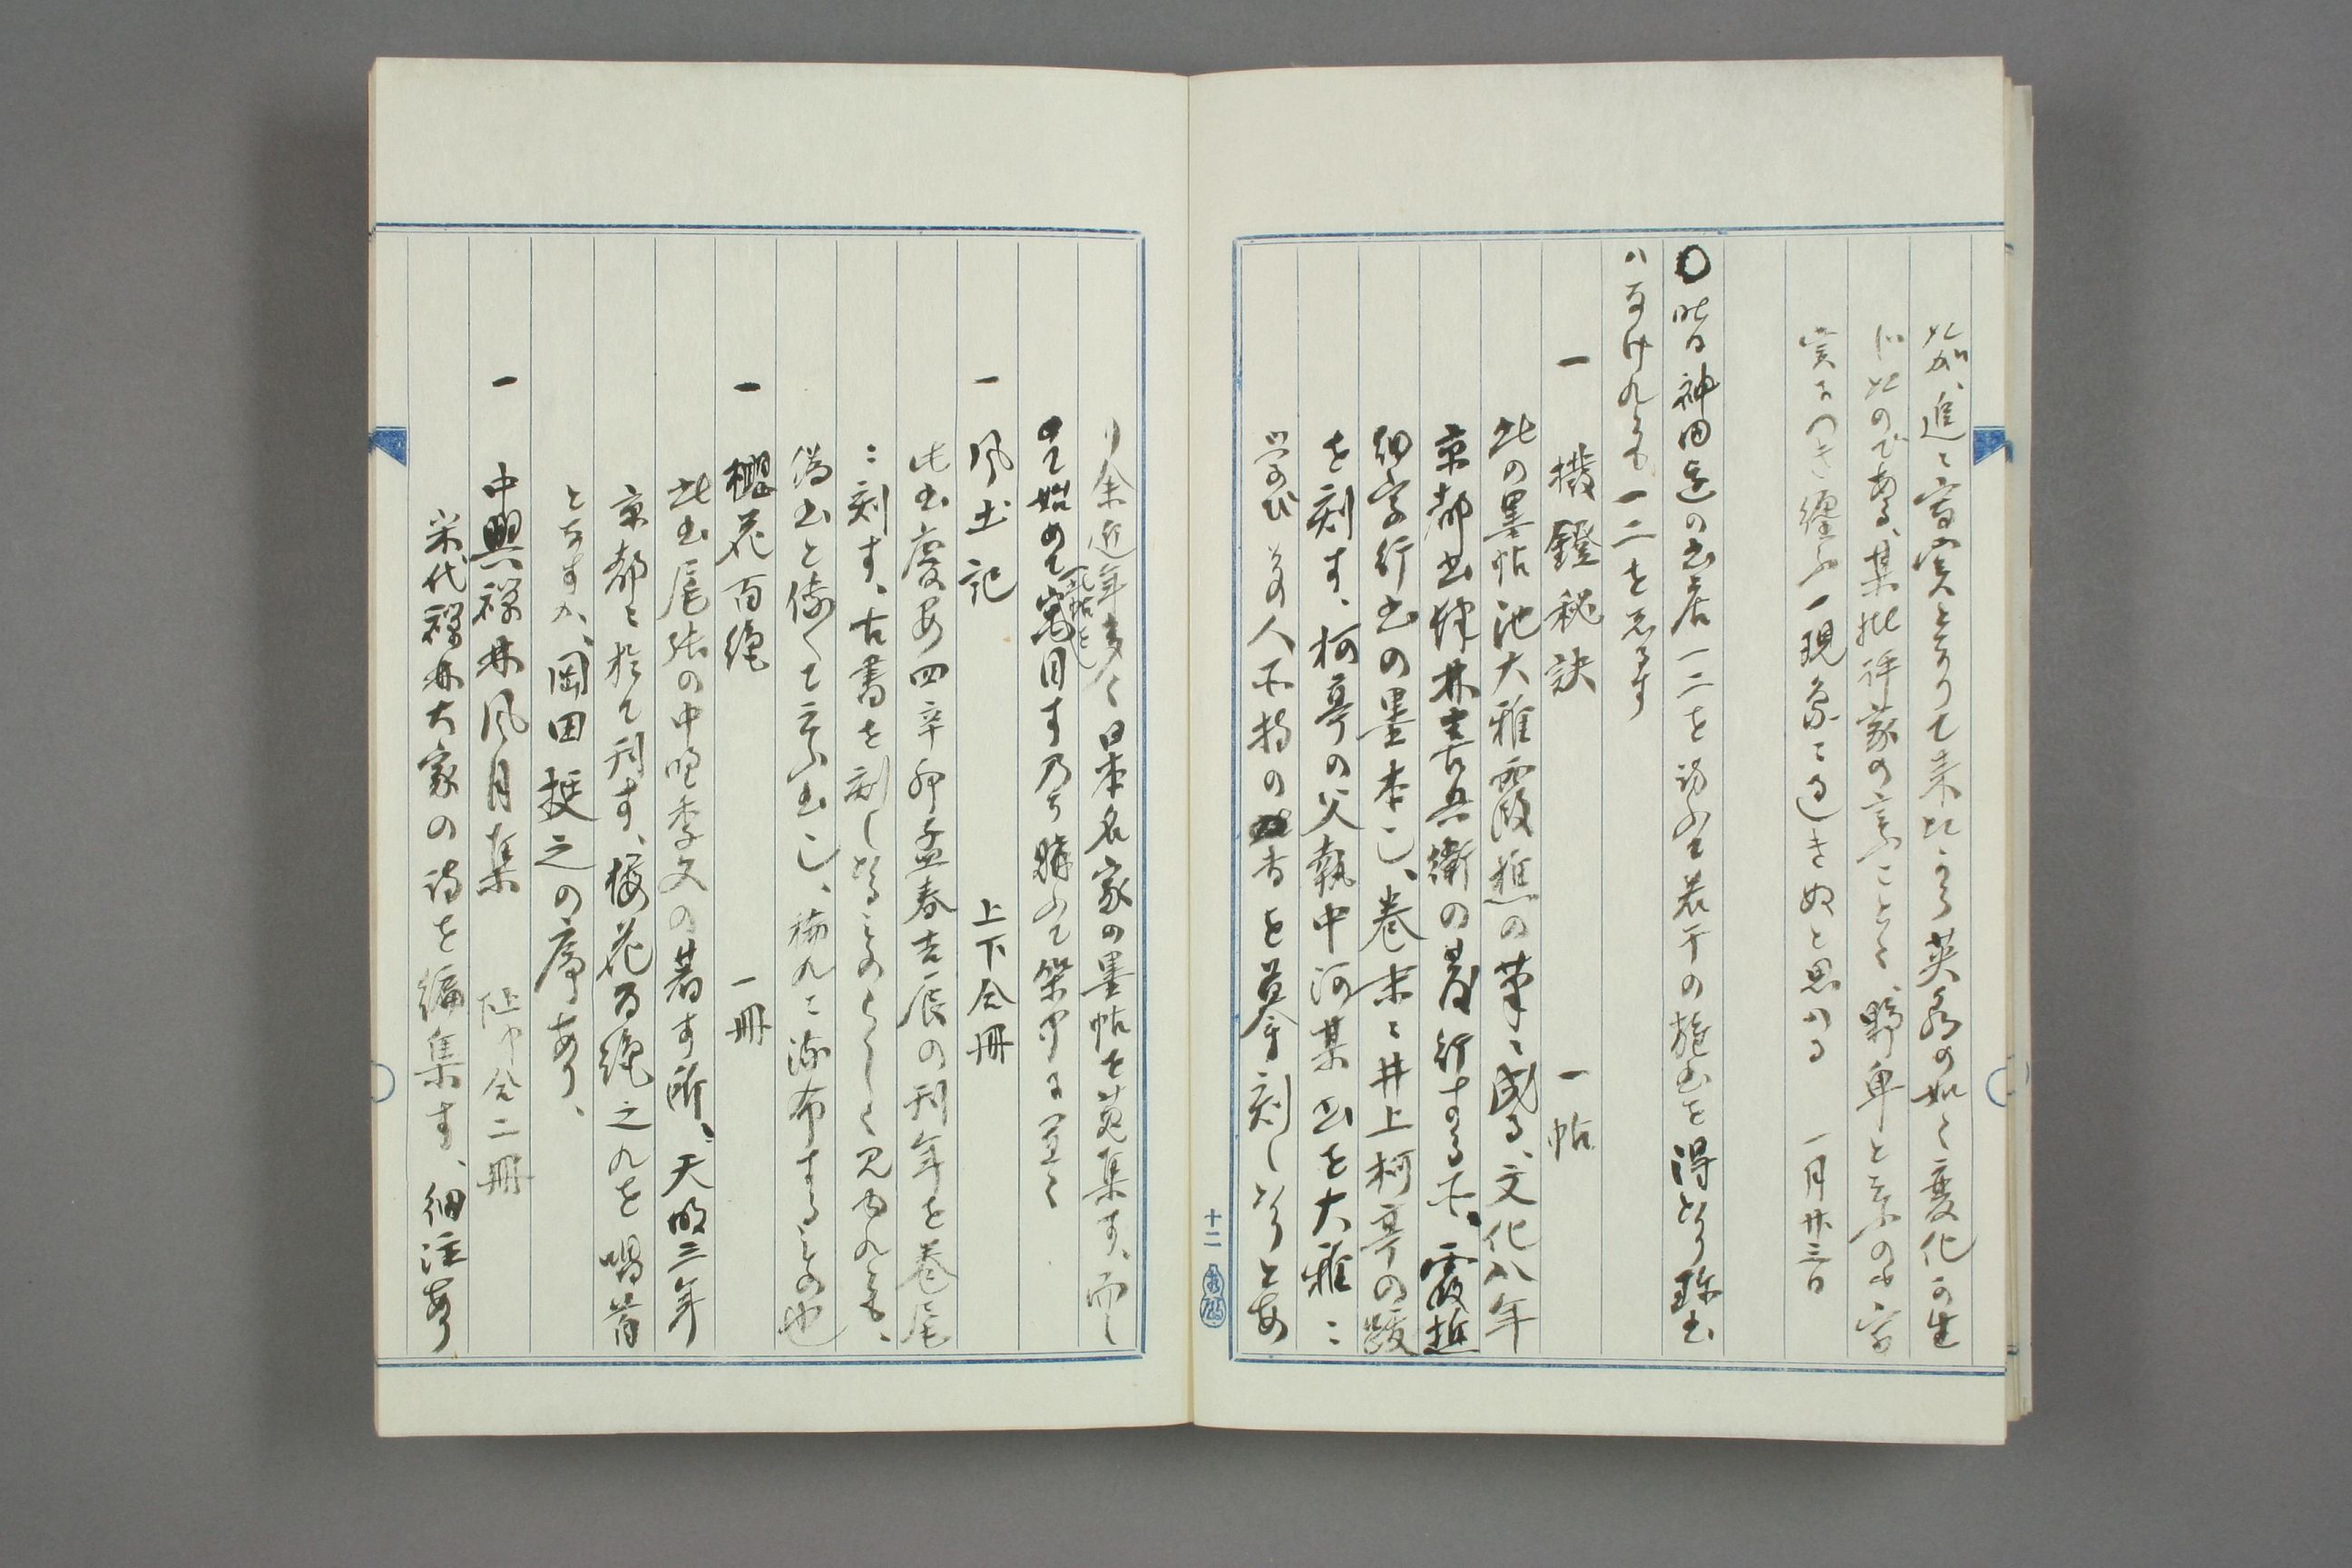 が、進て寫実となりて来たから英泉の如く変化の生
じたのである、某批評家の言ふごとく、野卑と云ふの文字
実につき纏ふ一現象に過きぬと思はる 一月廿三日
〇昨日神田辺の書店一二を訪ふて若干の雑書を得たり珍書
ハなけれども一二を志るす
一 撥鐙秘訣 一帖
此の墨帖池大雅霞樵の筆に成る、文化八年
京都書肆林喜兵衛の発行する所、霞樵
細字行書の墨本也、巻末に井上柯亭の跋
を刻す、柯亭の父執中河某書を大雅に
学び其の人所持の者を摹刻したりとあ
十二
り余近年多く日本名家の墨帖を蒐集す、而し
て始めて此帖を寓目す乃ち購ふて架中に置く
一 風土記 上下合冊
此書慶安四辛卯孟春吉辰の刊年を巻尾
に刻す、古書を刻したるものらしく見ゆれども、
偽書と傳へて云ふ書也、稀れに流布するもの也
一 櫻花百絶 一冊
此書尾張の中 季文の著す所、天明三年
京都に於て刊す、桜花百絶之れを唱首
となすか、岡田挺之の序あり、
一 中興禅林風月集 上中合二冊
宋代禅林大家の詩を編集す、細注あり